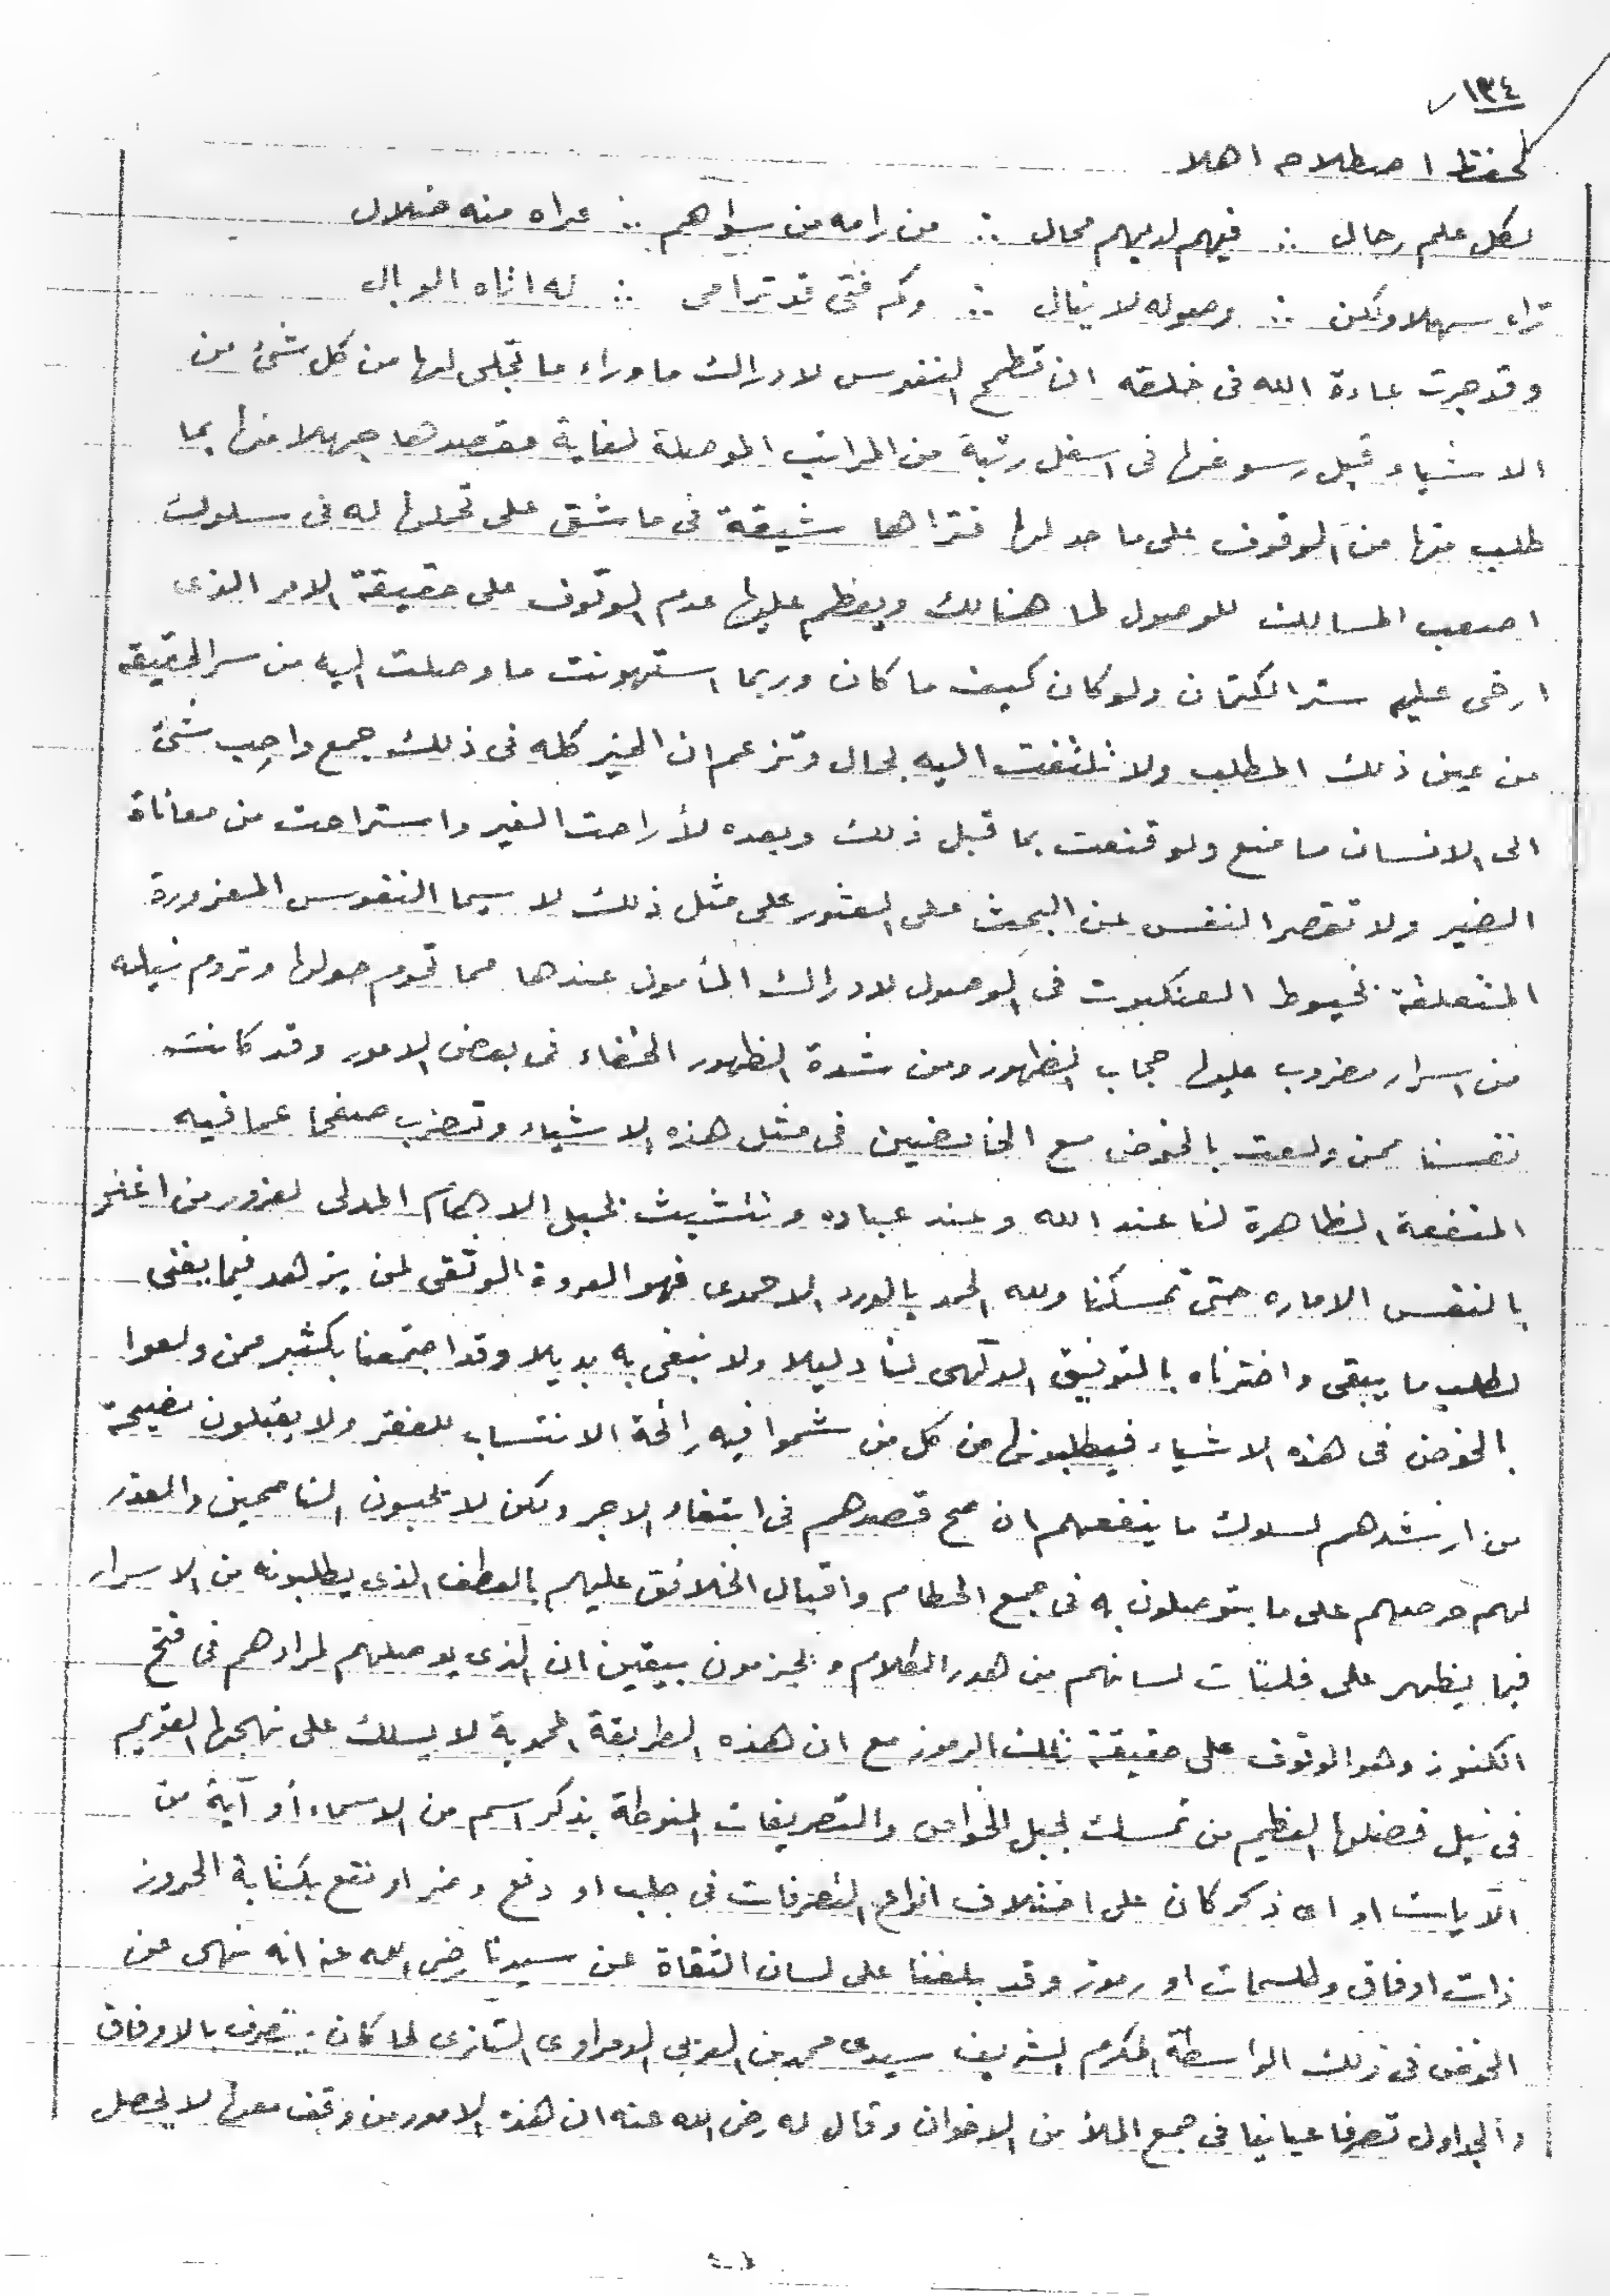 ١٣٤
لحفظ اصطلاح اهلا
لكل علم رجال ∴ فيهم لديهم محال ∴ من رامه من سواهم ∴ عراه منه ضلال
تراه سهلا ولكن ∴ وصوله لا ينال ∴ وكم فتى قد ترامى ∴ له اتاه الوبال
وقد جرت عادة الله فى خلقه ان تطمح النفوس لادراك ما وراء ما تجلى لها من كل شئ من
الاشياء قبل رسوخها فى اسفل رتبة من المراتب الموصلة لغاية مقصدها جهلا منها بما
طلب منها من الوقوف على ما حد لها فتراها شيقة فى ما شق على تحملها له فى سلوك
اصعب المسالك للوصول لما هنالك ويعظم عليها عدم الوقوف على حقيقة الامر الذى
ارخى عليه ستر الكتمان ولو كان كيف ما كان وربما استهونت ما وصلت اليه من سر الحقيقة
من عين ذلك المطلب ولا تلتفت اليه بحال وتزعم ان الخير كله فى ذلك جمع واحب شئ
الى الانسان ما منع ولو قنعت بما قبل ذلك وبعده لأراحت الغير واستراحت من معاناة
الضير ولا تقصر النفس عن البحث على العثور على مثل ذلك لا سيما النفوس المغرورة
المتعلقة بخيوط العنكبوت فى الوصول لادراك المأمول عندها مما تحوم حولها وتروم نيله
من اسرار مضروب عليها حجاب الظهور ومن شدة الظهور الخفاء فى بعض الامور وقد كانت
نفسنا ممن ولعت بالخوض مع الخائضين فى مثل هذه الاشياء وتضرب صفحا عما فيه
المنفعة الظاهرة لنا عند الله وعند عباده وتتشبث بحبل الابهام المدلى لغرور من اغتر
بالنفس الاماره حتى تمسكنا ولله الحمد بالورد الاحمدى فهو العروة الوثقى لمن يزهد فيما يفنى
لطلب ما يبقى واخترناه بالتوفيق الالهى لنا دليلا ولا نبغى به بديلا وقد اجتمعنا بكثير ممن ولعوا
بالخوض فى هذه الاشياء فيطلبونها من كل من شموا فيه رائحة الانتساب للفقر ولا يقبلون نصيحة
من ارشدهم لسلوك ما ينفعهم ان صح قصدهم فى ابتغاء الاجر ولكن لا تحبون الناصحين والعذر
لهم حرصهم على ما يتوصلون به فى جمع الحطام واقبال الخلائق عليهم بالعطف الذى يطلبونه من الاسرار
فيما يظهر على فلتات لسانهم من هدر الكلام ويجزمون بيقين ان الذى يوصلهم لمرادهم فى فتح
الكنوز وهو الوقوف على حقيقة تلك الرموز مع ان هذه الطريقة المحمدية لا يسلك على نهجها القويم
فى نيل فضلها العظيم من تمسك بحبل الخواص والتصريفات المنوطة بذكر اسم من الاسماء أو آية من
الآيات او اى ذكر كان على اختلاف انواع التصرفات فى جلب او دفع وضر او نفع بكتابة الحروز
ذات اوفاق وطلسمات او رموز وقد بلغنا على لسان الثقاة عن سيدنا رضى الله عنه انه نهى عن
الخوض فى ذلك الواسطة المكرم الشريف سيدى محمد بن العربى الدمراوى التازى لما كان يتصرف بالاوفاق
والجداول تصرفا عيانيا فى جمع الملأ من الاخوان وقال له رضى الله عنه ان هذه الامور من وقف معها لا يحصل